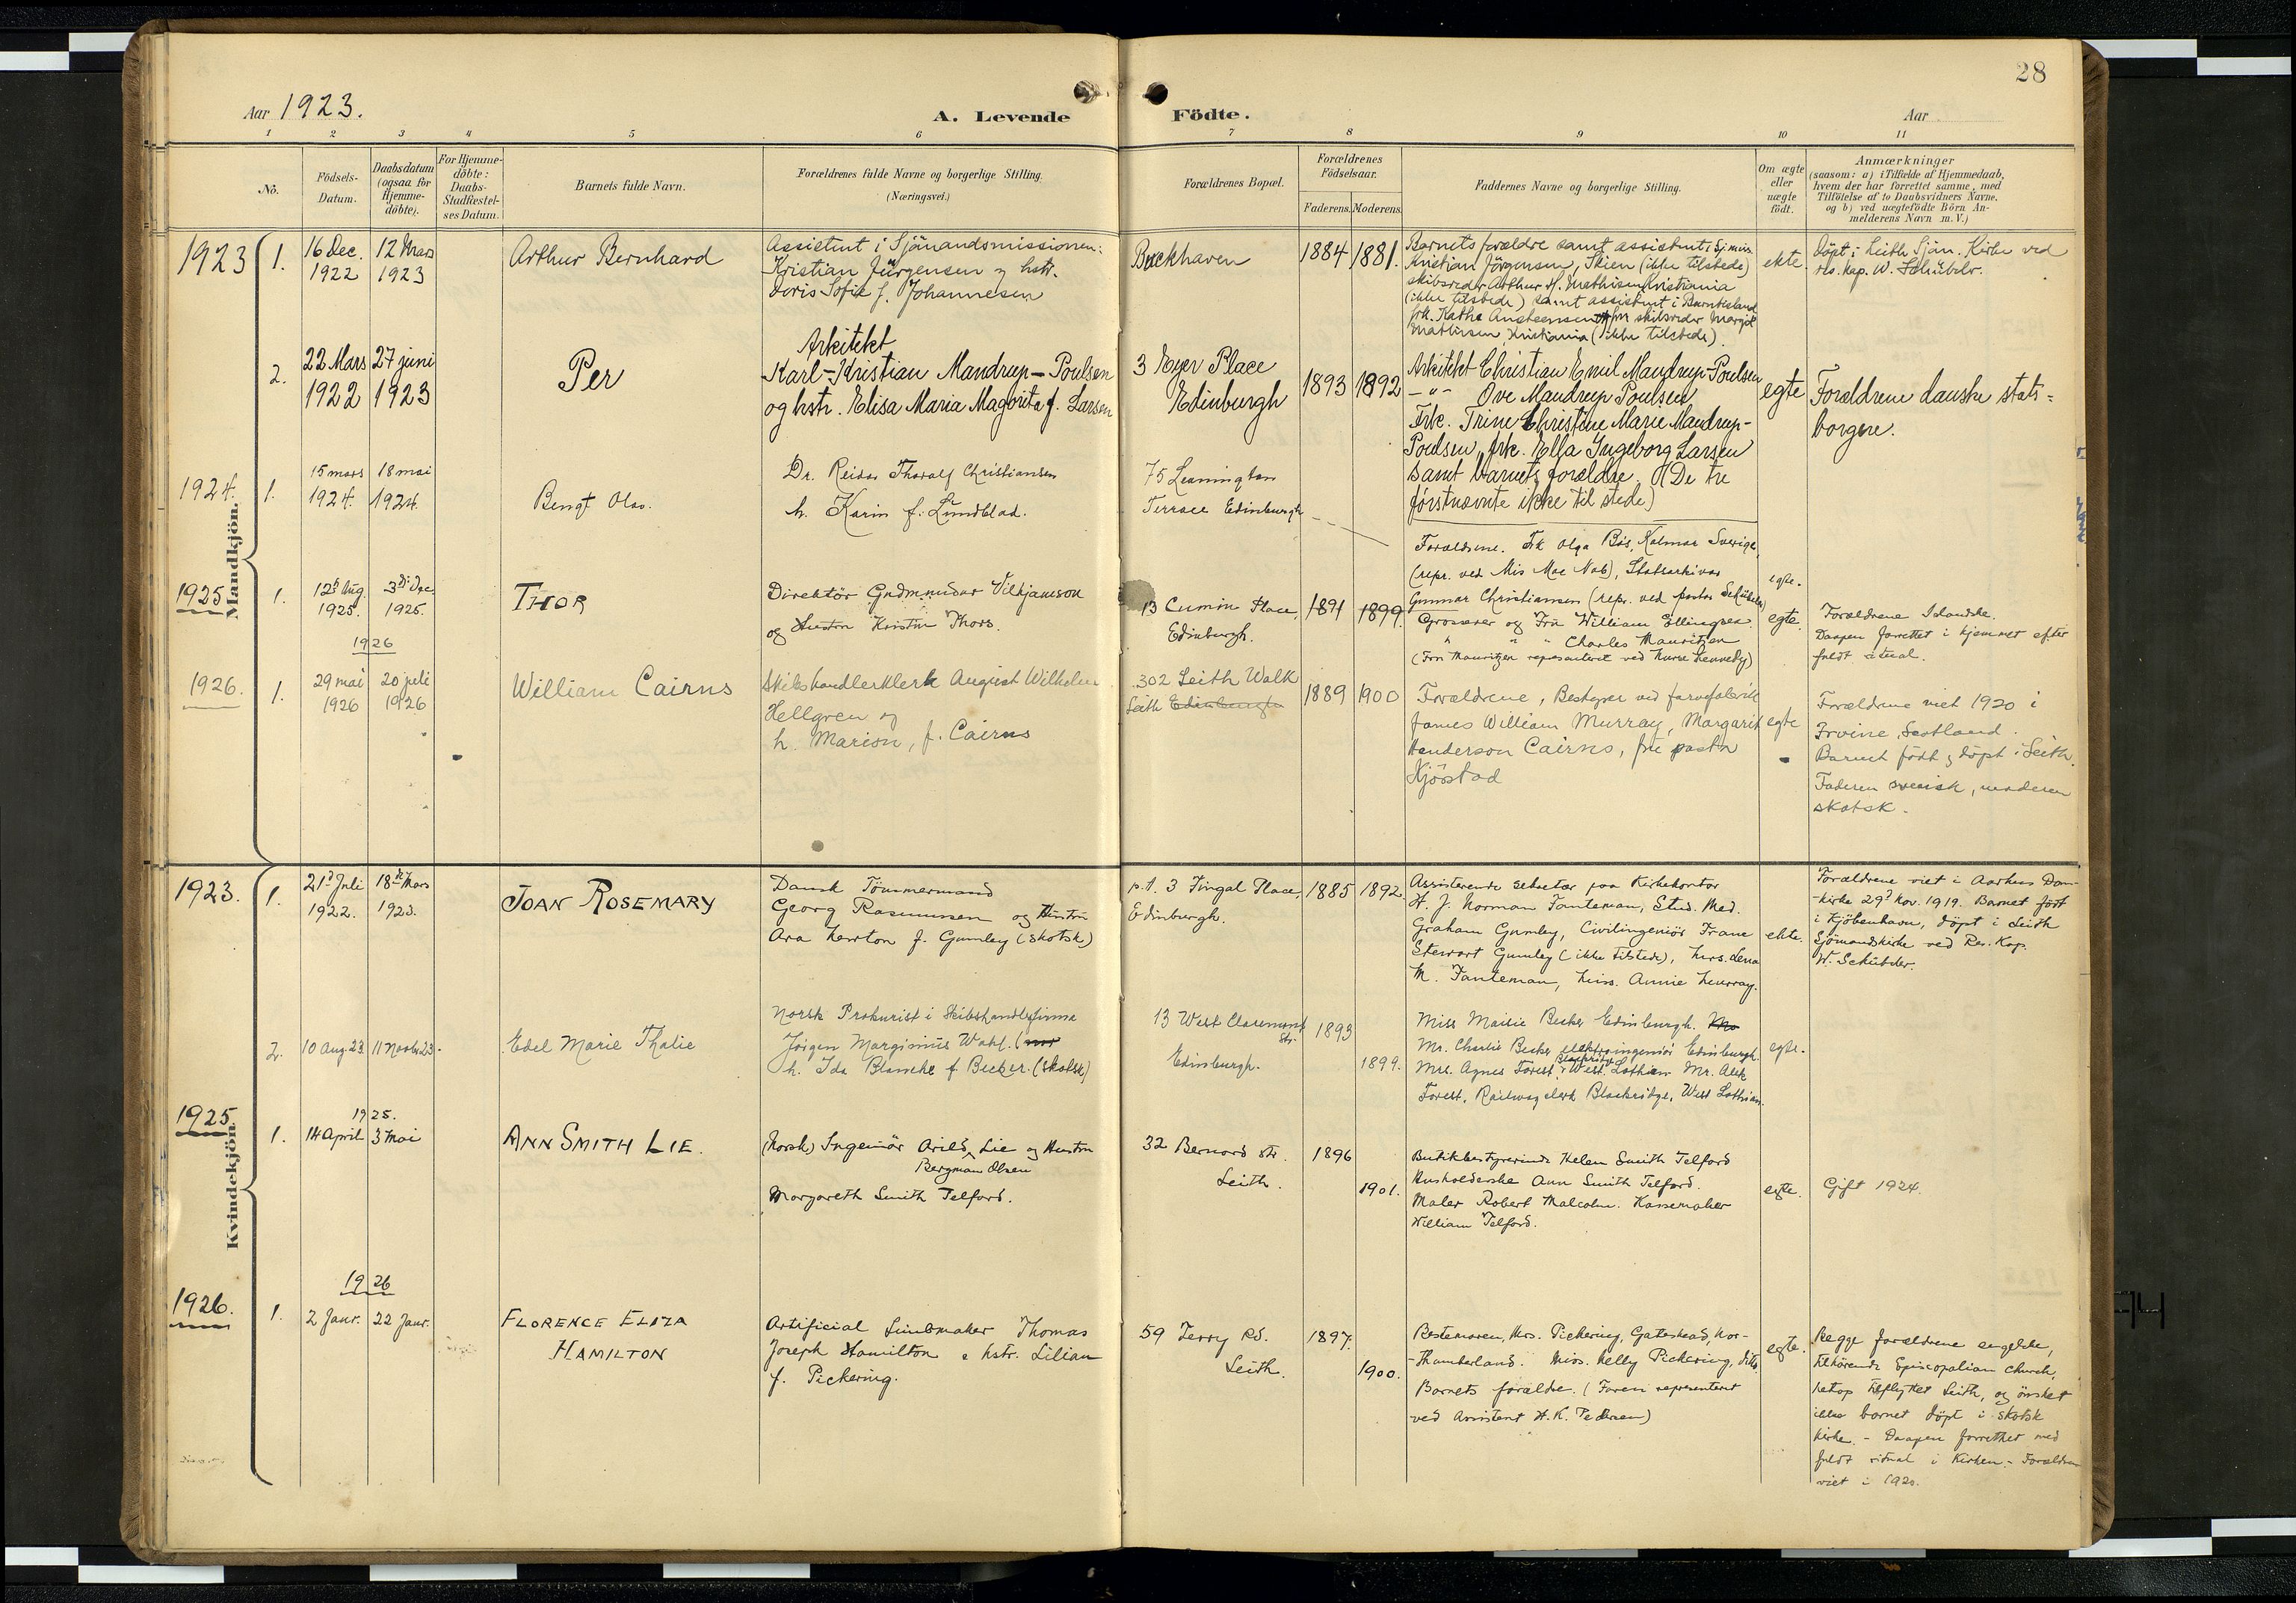 28
Aar 1923.
A. Levende Födte.
Aar
1 2 3 4 5 6 7 8 9 10 11
No.
Födsels-Datum.
Daabsdatum (ogsaa for Hjemme-döbte).
For Hjemme-döbte: Daabs-Stadfæstel-ses Datum.
Barnets fulde Navn.
Forældrenes fulde Navne og borgerlige Stilling.
(Næringsvei.)
Forældrenes Bopæl.
Forældrenes Födselsaar.
Faderens. Moderens.
Faddernes Navne og borgerlige Stilling.
Om ægte eller uægte födt.
Anmærkninger
(saasom: a) i Tilfælde af Hjemmedaab,
hvem der har forrettet samme, med
Tilföielse af to Daabsvidners Navne,
og b) ved uægtefödte Börn An-
melderens Navn m. V.)
Mandkjön.
1923 1.
16 Dec. 1922
12 Mars 1923
Arthur Bernhard
Assistent i Sjömandsmissionen:
Kristian Jürgensen og hstr.
Doris Sofie f. Johannesen
Buckhaven
1884 1881.
Barnets forældre samt assistent i Sj.mis.
Kristian Jörgensen, Skien (ikke tilstede)
skibsreder Arthur H. Mathisen Kristiania
(ikke tilstede) samt assistent i Burntisland
frk. Kathe Andreassen og fru skibsreder Margit
Mathisen, Kristiania (ikke tilstede).
ekte
Döpt i Leith Sjöm. Kirke ved
res. kap. W. Schübeler.
2.
22 Mars 1922
27 juni 1923
Per
Arkitekt
Karl-Kristian Mandrup-Poulsen
og hstr. Elisa Maria Magorita f. Larsen
3 Eyer Place
Edinburgh
1893 1892
Arkitekt Christian Emil Mandrup-Poulsen
-"- Ove Mandrup Poulsen
Frk. Trine Christine Marie Mandrup-
Poulsen, frk. Ella Ingeborg Larsen
samt barnets forældre. (De tre
förstnævnte ikke til stede)
egte
Forældrene danske stats=
borgere.
1924. 1.
15 mars 1924.
18 mai 1924.
Bengt Olav.
Dr. Reidar Thoralf Christiansen
h. Karin f. Lundblad.
75 Leamington
Terrace Edinburgh
Forældrene. Frk Olga Bös, Kalmar Sverige,
(repr. ved Mis Mac Nab), Statsarkivar
Gunnar Christiansen (repr. ved pastor Schübeler)
egte.
1925 1.
12 Aug. 1925.
3 Dec. 1925.
Thor
Direktör Gudmundur Vilhjamson
og Hustru Kristin Thors.
13 Cumin Place,
Edinburgh.
1891 1899.
Grosserer og Fru William Ellingsen.
" " " Charles Mauritzen
(Fru Mauritzen representeret ved Nurse Kennedy)
egte.
Forældrene Islandske.
Daapen forrettet i hjemmet efter
fuldt ritual.
1926
1926. 1.
29 mai 1926
20 juli 1926
William Cairns
Skibshandlerklerk August Wilhelm
Hellgren og
h. Marion, f. Cairns
302 Leith Walk
Leith Edinburgh
1889 1900
Forældrene, Bestyrer ved farvefabrik
James William Murray, Margarit
Henderson Cairns, fru pastor
Kjöstad
egte
Forældrene viet 1920 i
Irvine, Scotland.
Barnet födt og döpt i Leith.
Faderen svensk, moderen
skotsk.
Kvindekjön.
1923. 1.
21 Juli 1922.
18 Mars 1923.
Joan Rosemary
Dansk Tömmermand
Georg Rasmussen og Hustru
Ara Newton f. Gumley (skotsk)
p.t. 3 Tingal Place,
Edinburgh.
1885 1892.
Assisterende sekretær paa Kirkekontor
H. J. Norman Fanteman, Stud. Med.
Graham Gumley, Civilingeniör Franc
Stewart Gumley (ikke tilstede), Mrs. Lena
M. Fanteman, Miss. Annie Murray.
ekte.
Forældrene viet i Aarhus Dom-
-kirke 29 Nov. 1919. Barnet födt
i Kjöbenhavn, döpt i Leith
Sjömandskirke ved Res. Kap.
W. Schübeler.
2.
10 Aug. 23.
11 Novbr 23.
Edel Marie Thalie
Norsk Prokurist i Skibshandlerfirma
Jörgen Marginius Wahl.
h. Ida Blanche f Becker. (skotsk)
13 West Claremont Str.
Edinburgh.
1893
1899.
Miss Maisie Becker Edinburgh.
Mr. Charlie Becker elektroingeniör Edinburgh.
Mrs. Agnes Forest, Blackridge West Lothian Mr. Alek
Forest. Railway clerk Blackridge. West Lothian.
egte.
1925. 1.
1925.
14 April
3 Mai
Ann Smith Lie.
(Norsk) Ingeniör Arild Bergman Olsen Lie og Hustru
Margareth Smith Telford.
32 Bernard str.
Leith.
1896
1901.
Butikbestyrerinde Helen Smith Telford
Husholderske Ann Smith Telford.
Maler Robert Malcolm. Kassemaker
William Telford.
egte.
Gift 1924.
1926. 1.
1926
2 Janr.
22 Janr.
Florence Eliza
Hamilton
Artificial Limbmaker Thomas
Joseph Hamilton & hstr. Lilian
f. Pickering.
59 Ferry Rd.
Leith.
1897.
1900.
Bestemoren, Mrs. Pickering, Gateshead, Nor-
-thumberland. Miss. Nelly Pickering, ditto.
Barnets forældre. (Faren representeret
ved Assistent H. K. Pedersen)
egte.
Begge forældrene engelske,
tilhörende Episcopalian Church,
netop tilflyttet Leith, og önsket
ikke barnet döpt i skotsk
kirke. - Daapen forrettet med
fuldt ritual i Kirken. - Forældrene
viet i 1920.